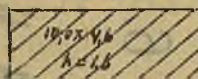 10,0 x 4,6
h = 1,6